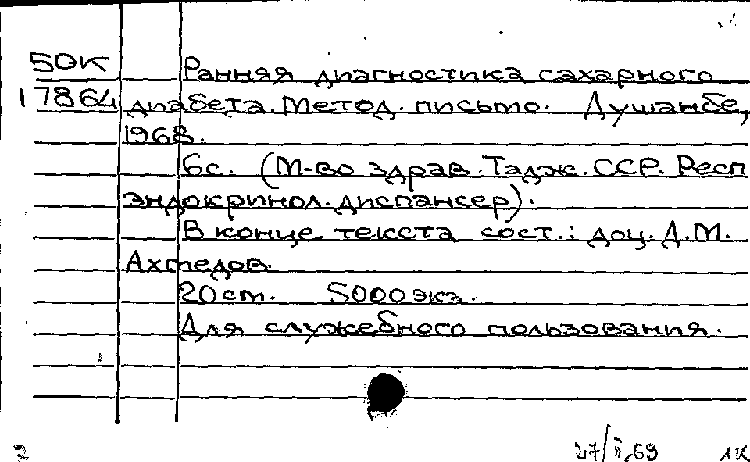 50К Ранняя диагностика сахарного
17864 диабета. Метод. письмо. Душанбе,
1968.
6с. (М-во здрав. Тадж. ССР. Респ
эндокринол. диспансер).
В конце текста сост.: доц. Д.М.
Ахмедов.
20см. 5000экз.
Для служебного пользования.
2 27/ 69